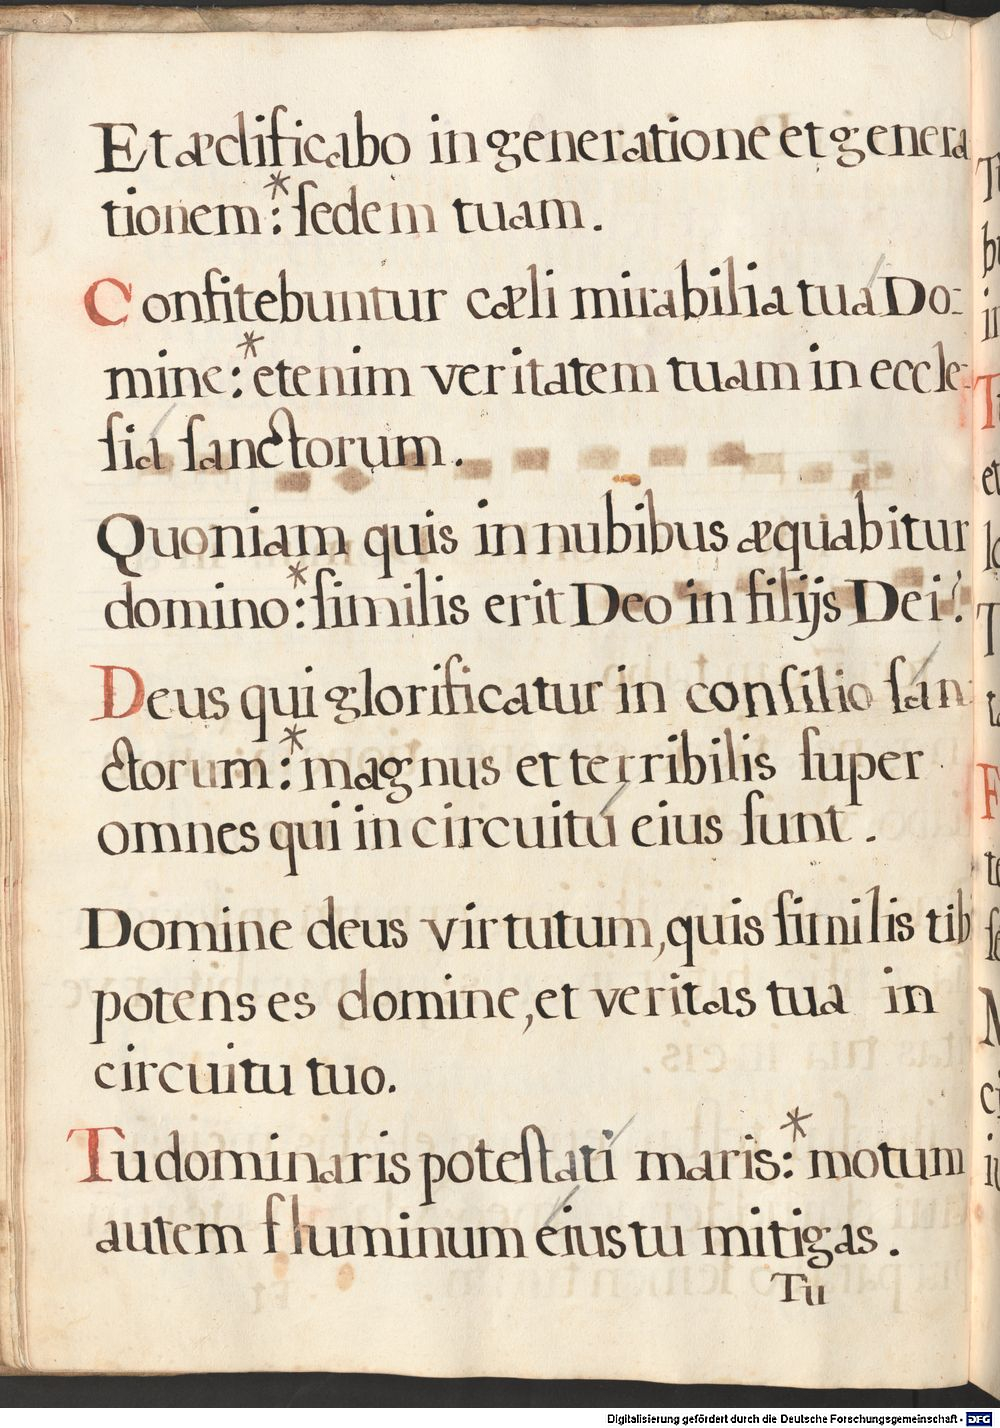 Et ædificabo in generatione et genera
tionem :* ſedem tuam .
Confitebuntur cæli mirabilia tuá Do-
mine :* etenim veritatem tuam in eccle-
ſiá ſanctorum .
Quoniam quis in nubibus æquabitur
domino :* ſimilis erit Deo in filijs Dei ?
Deus qui glorificatur in conſilio ſán-
ctorum :* magnus et terribilis ſuper
omnes qui in circuitú eius ſunt .
Domine deus virtutum, quis ſimilis tib
potens es domine, et veritas tua in
circuitu tuo.
Tu dominaris poteſtatí maris :* motum
autem fluminum éius tu mitigas .
Tu
Digitalisierung gefördert durch die Deutsche Forschungsgemeinschaft - DFG